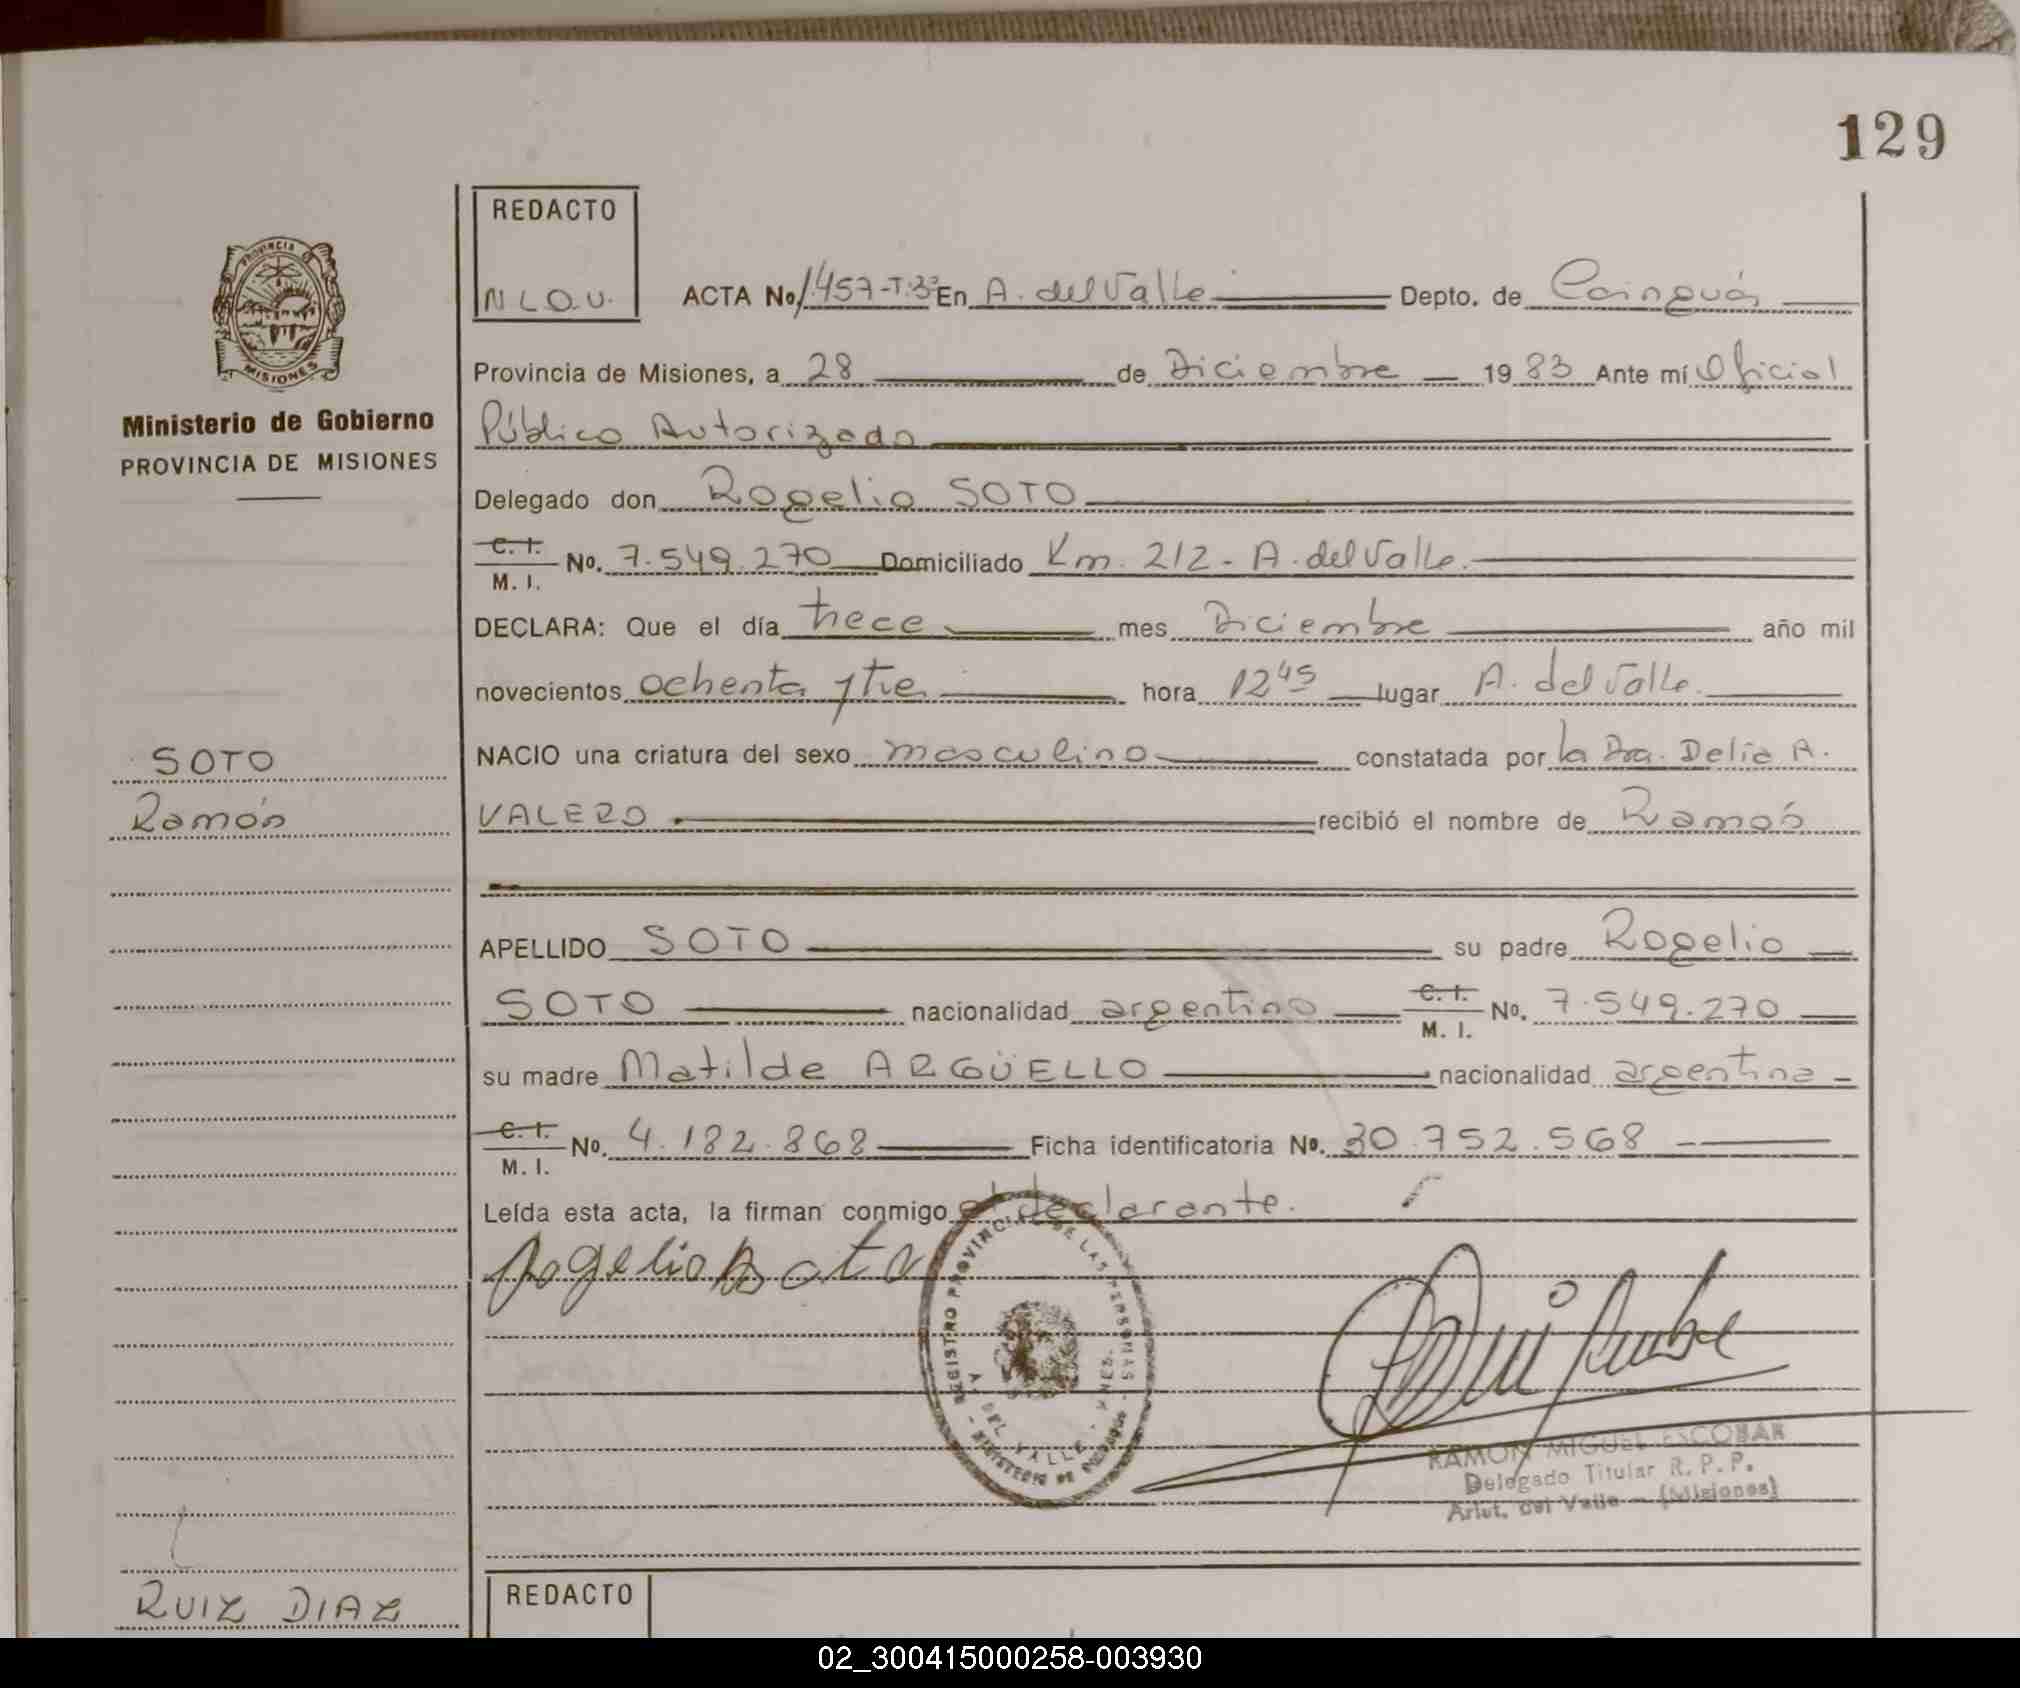 129
REDACTO
N L O.V.
PROVINCIA
MISIONES
Ministerio de Gobierno
PROVINCIA DE MISIONES
ACTA No. 1457-T:3º En A. del Valle Depto. de Cainguás
Provincia de Misiones, a 28 de Diciembre 1983 Ante mí Oficial
Público Autorizado
Delegado don Rogelio SOTO
C. I. M. I. No. 7.549.270 Domiciliado Km. 212 - A. del Valle.
DECLARA: Que el día trece mes Diciembre año mil
novecientos ochenta y tre hora 12 45 lugar A. del Valle.
NACIO una criatura del sexo masculino constatada por la Dra. Delia A.
VALERO recibió el nombre de Ramón
SOTO
Ramón
APELLIDO SOTO su padre Rogelio
SOTO nacionalidad argentino C. I. M. I. No. 7.549.270
su madre Matilde ARGÜELLO nacionalidad argentina
C. I. M. I. No. 4.182.868 Ficha identificatoria No. 30.752.568
Leída esta acta, la firman conmigo el declarante.
Rogelio Soto
REGISTRO PROVINCIAL DE LAS PERSONAS - MINISTERIO DE GOBIERNO
A. DEL VALLE - MNES.
RAMON MIGUEL ESCOBAR
Delegado Titular R. P. P.
Arist. del Valle - (Misiones)
RUIZ DIAZ
REDACTO
02_300415000258-003930